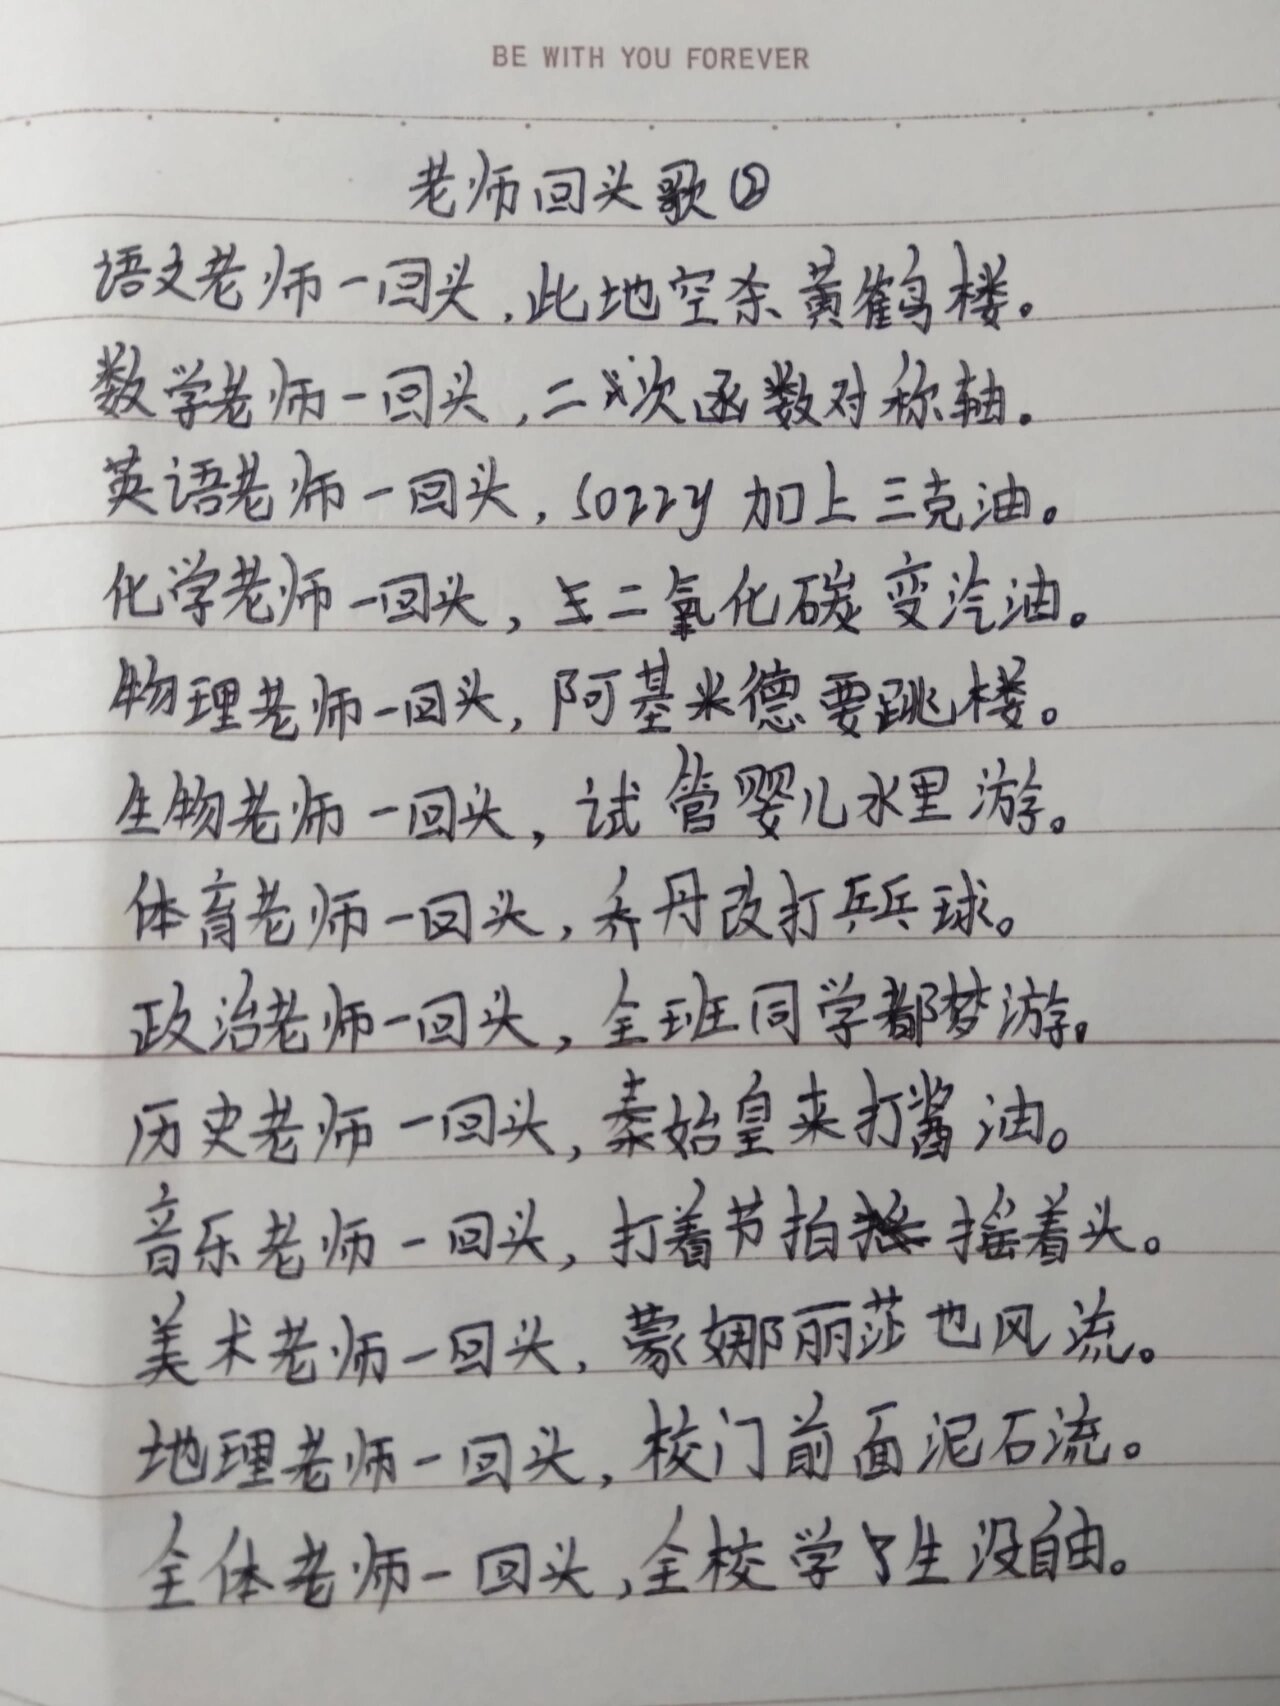 BE WITH YOU FOREVER
老师回头歌②
语文老师一回头,此地空杀黄鹤楼。
数学老师一回头,二次函数对称轴。
英语老师一回头,sorry加上三克油。
化学老师一回头,二氧化碳变汽油。
物理老师一回头,阿基米德要跳楼。
生物老师一回头,试管婴儿水里游。
体育老师一回头,乔丹改打乒乓球。
政治老师一回头,全班同学都梦游。
历史老师一回头,秦始皇来打酱油。
音乐老师一回头,打着节拍摇着头。
美术老师一回头,蒙娜丽莎也风流。
地理老师一回头,校门前面泥石流。
全体老师一回头,全校学生没自由。